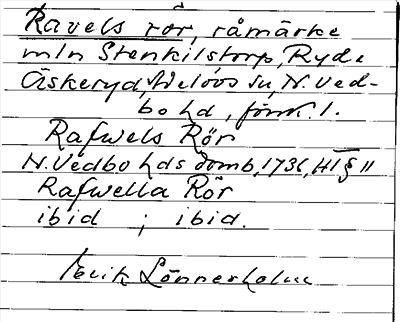 Ravels rör, råmärke
mln Stenkilstorp, Ryd o
Äskeryd, Adelövs sn, N. Ved-
bo hd, förml.
Rafwels Rör
N. Vedbo hds domb, 1736, HT § 11
Rafwella Rör
ibid ; ibid.
Erik Lönnerholm